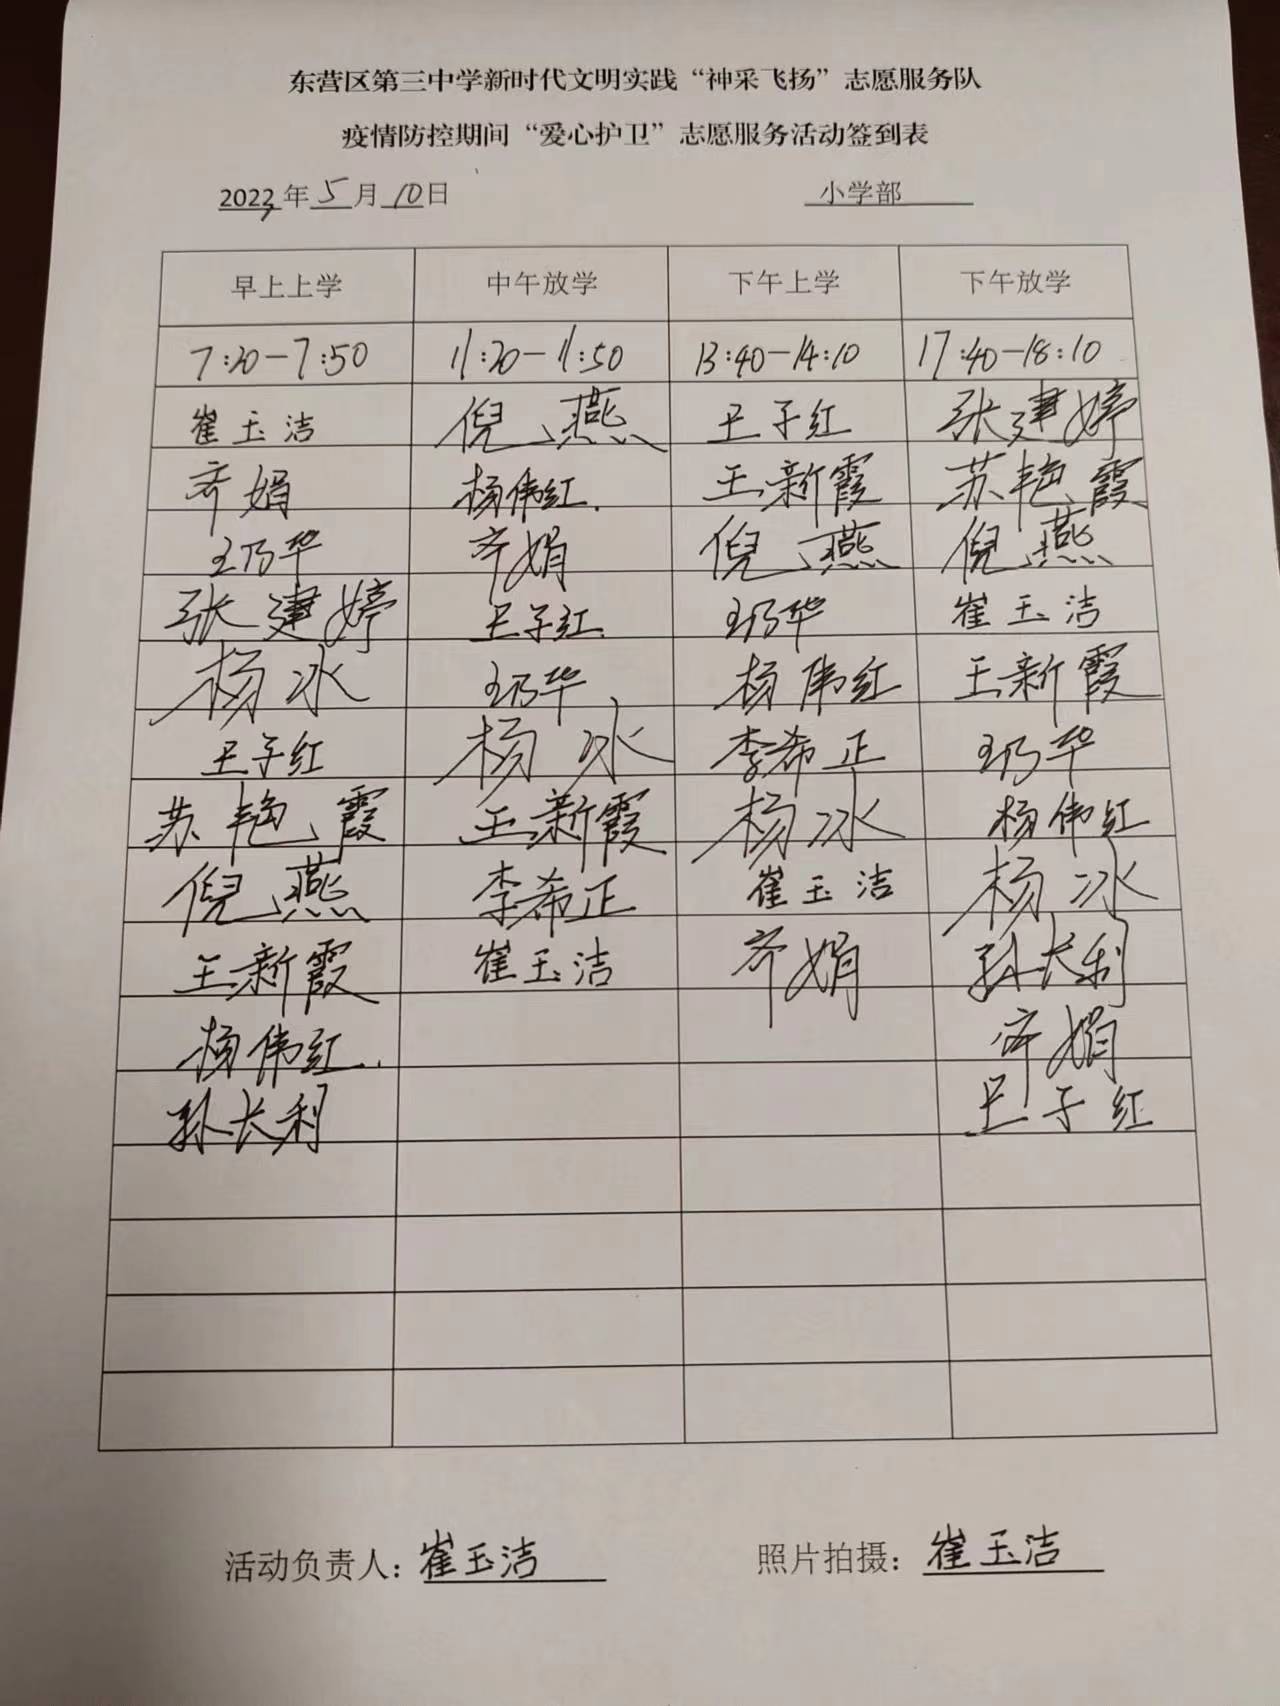 东营区第三中学新时代文明实践“神采飞扬”志愿服务队
疫情防控期间“爱心护卫”志愿服务活动签到表
2022年5月10日 小学部
早上上学 中午放学 下午上学 下午放学
7:20-7:50 11:20-11:50 13:40-14:10 17:40-18:10
崔玉洁 倪燕 王子红 张建婷
齐娟 杨伟红. 王新霞 苏艳霞
王乃华 齐娟 倪燕 倪燕
张建婷 王子红. 王乃华 崔玉洁
杨冰 王乃华 杨伟红 王新霞
王子红 杨冰 李希正 王乃华
苏艳霞 王新霞 杨冰 杨伟红
倪燕 李希正 崔玉洁 杨冰
王新霞 崔玉洁 齐娟 孙长利
杨伟红. 齐娟
孙长利 王子红
活动负责人：崔玉洁 照片拍摄：崔玉洁